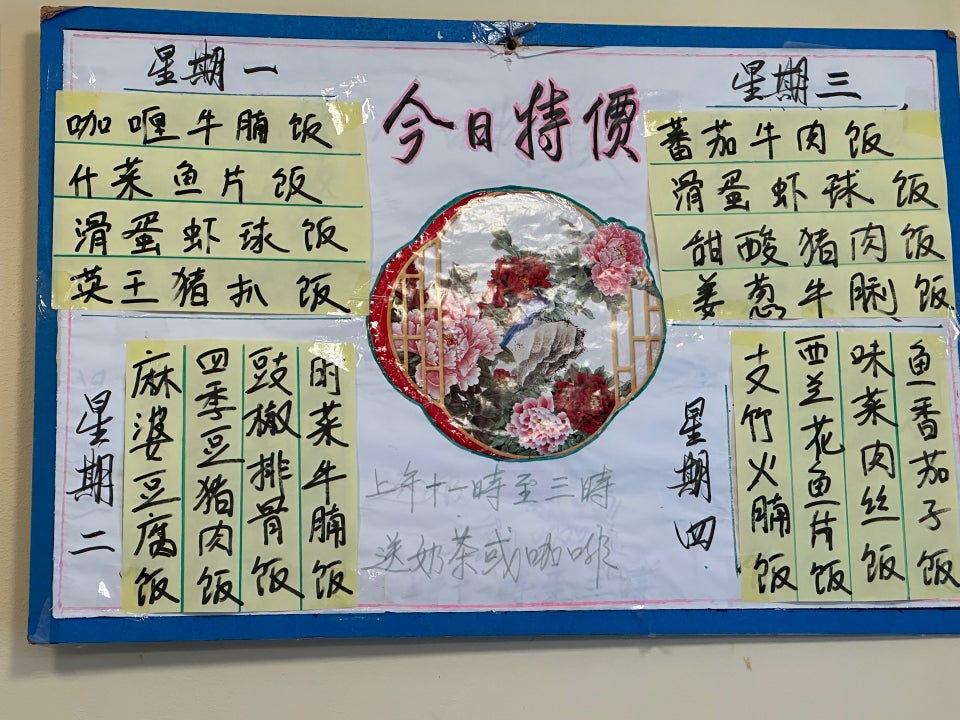 今日特價
星期一
咖喱牛腩饭
什菜鱼片饭
滑蛋虾球饭
英王猪扒饭
星期二
麻婆豆腐饭
四季豆猪肉饭
豉椒排骨饭
时菜牛腩饭
星期三
蕃茄牛肉饭
滑蛋虾球饭
甜酸猪肉饭
姜葱牛脷饭
星期四
支竹火腩饭
西兰花鱼片饭
味菜肉丝饭
鱼香茄子饭
上午十一時至三時
送奶茶或咖啡